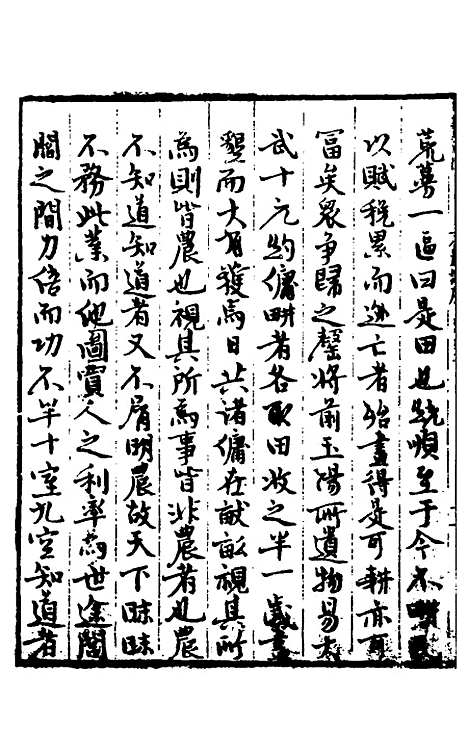 荒蕩一區曰是田也統順至于今不耕
以賦稅累而逃亡者殆盡得是可耕亦可
富矣衆爭歸之罄將前玉陽所遺物易
武十元約傭耕者各取田收之半一歲
墾而大有獲焉日共諸傭在畎畝視其所
為則皆農也視其所為事皆非農者也農
不知道知道者又不屑明農故天下昧昧
不務此業而他圖賈人之利率為世途閣
閣之間力倍而功不半十室九空知道者